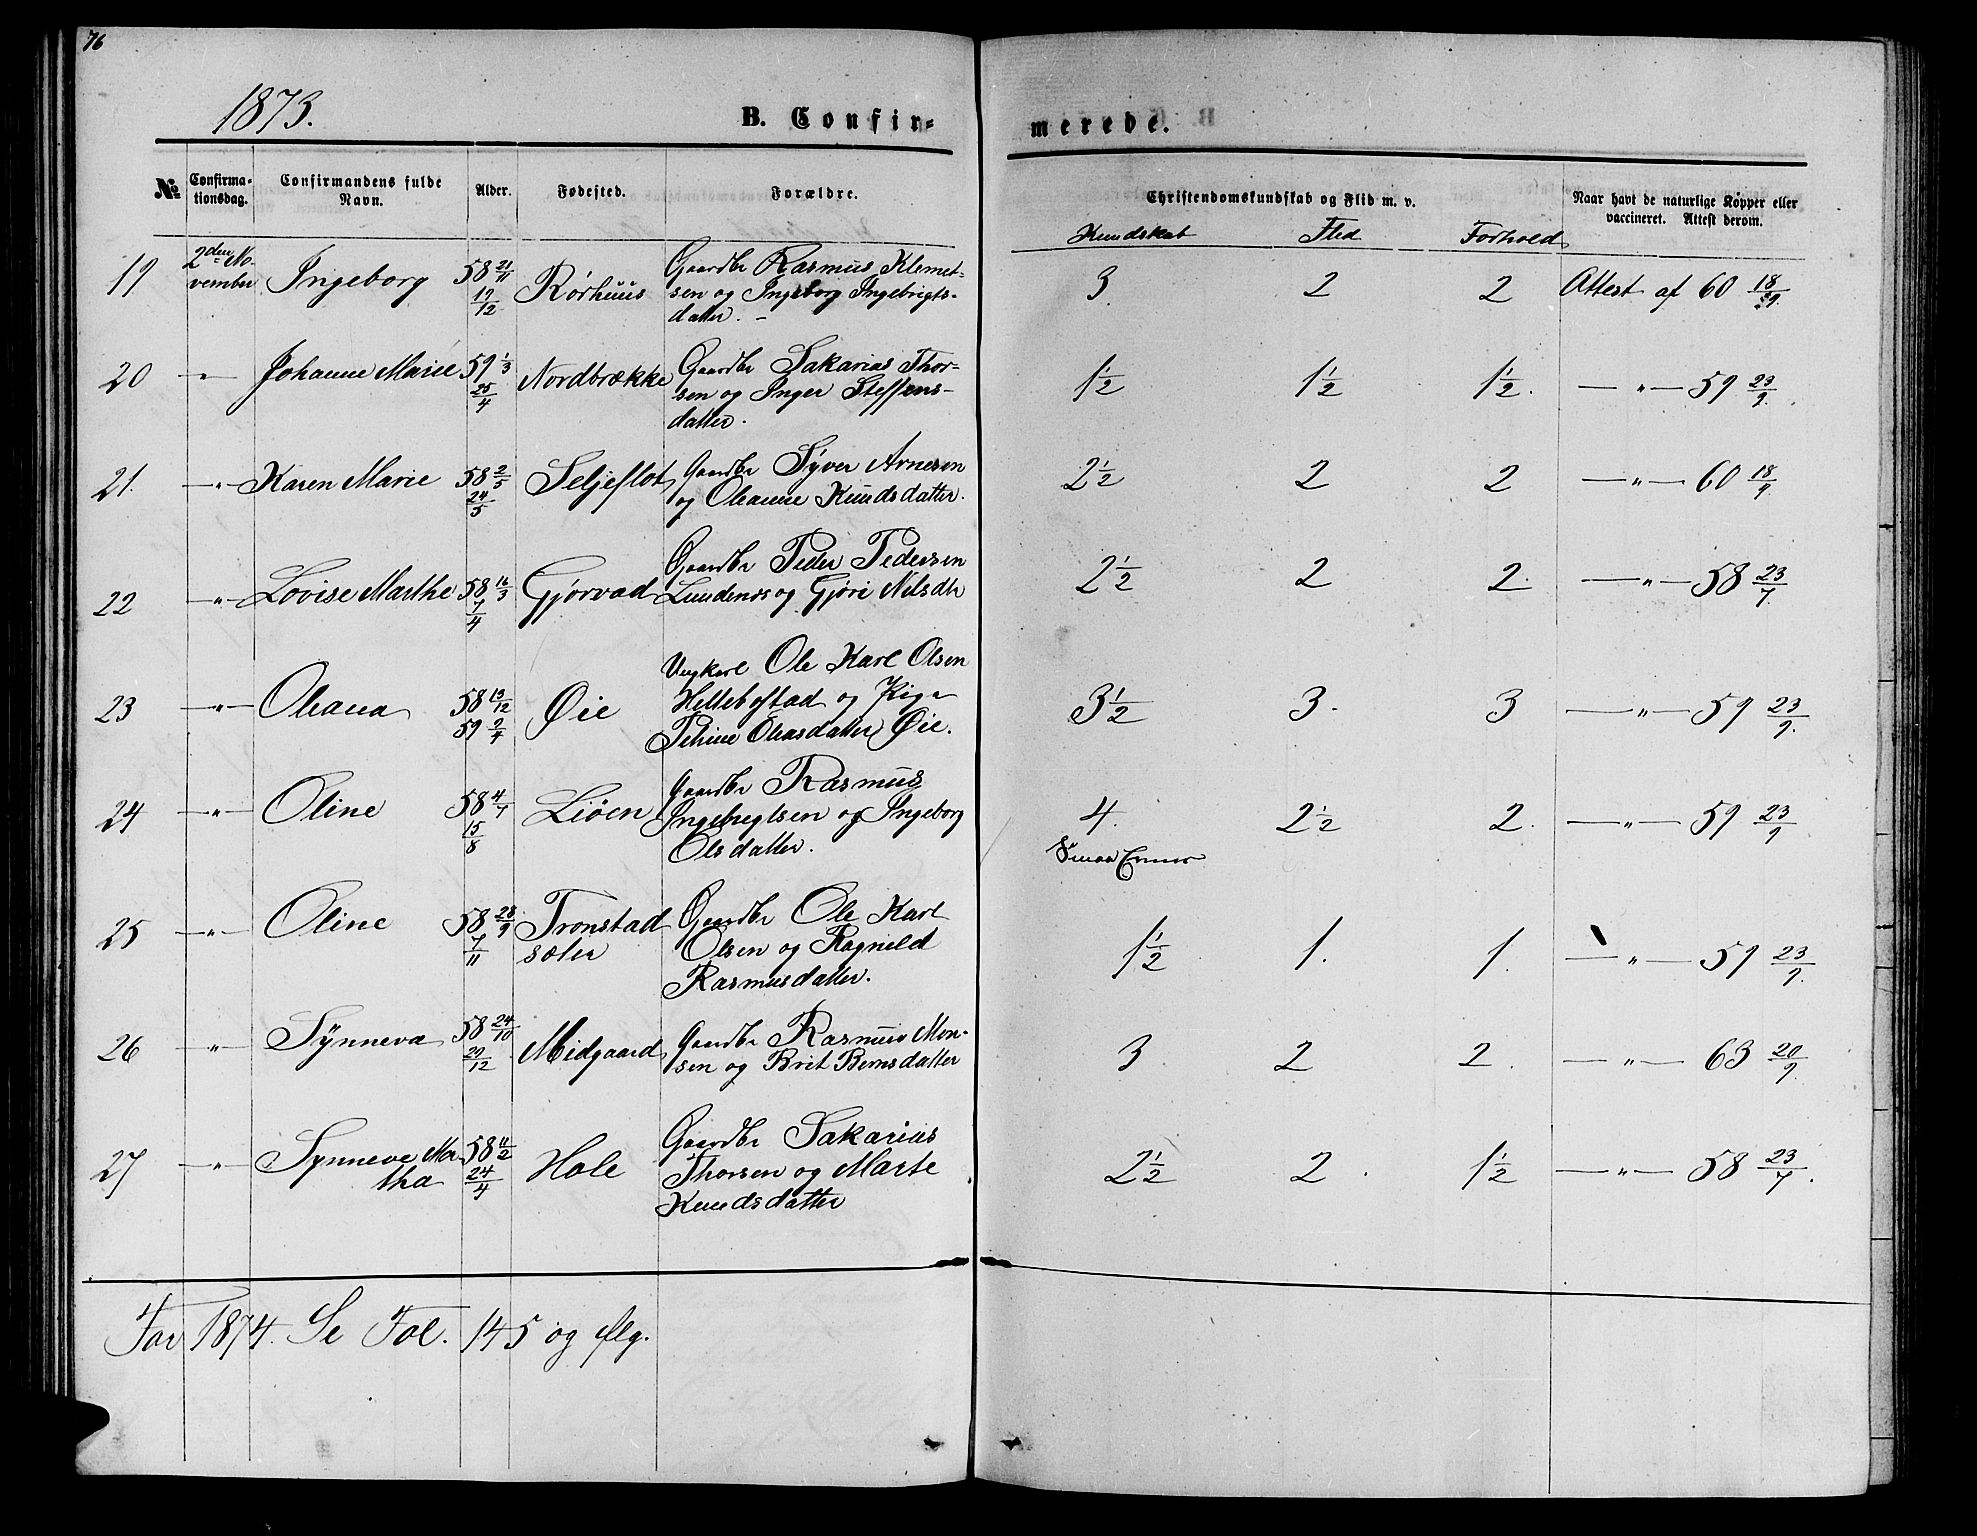 76
1873.
B. Confir-
merede.
No
Confirma-
tionsdag.
Confirmandens fulde
Navn.
Alder.
Fødested.
Forældre.
Christendomskundskab og Flid m. v.
Kundskab Flid Forhold
Naar havt de naturlige Kopper eller
vaccineret. Attest derom.
19 2den No-
vember Ingeborg 58 21/11 17/12 Rørhuus
Gaardbr Rasmus Klemet-
sen og Ingeborg Ingebrigts-
datter. –
3 2 2 Attest af 60 18/9.
20 –"– Johanne Marie 59 1/3 25/4 Nordbrække
Gaardbr Sakarias Thor-
sen og Inger Steffens-
datter.
1½ 1½ 1½. –"– 59 23/9.
21. –"– Karen Marie 58 2/5 24/5 Seljeflot
Gaardbr Syver Arnesen
og Oleanne Knudsdatter.
2½ 2 2 –"– 60 18/9
22 –"– Lovise Marthe 58 16/3 7/4 Gjørvad
Gaardbr Peder Pedersen
Lundenes og Gjøri Nilsdtr
2½ 2 2. –"– 58 23/7.
23 –"– Oleana 58 13/12 59 2/4 Øie
Ungkarl Ole Karl Olsen
Hellebostad og Piga
Petrine Olnasdatter Øie.
3½ 3. 3 –"– 59 23/9.
24 –"– Oline 58 4/7 15/8 Liøen
Gaardbr Rasmus
Ingebregtsen og Ingeborg
Olsdatter.
4. 2½ 2. –"– 59 23/9
Smaa Evner
25 –"– Oline 58 28/9 7/11 Tronstad
sæter
Gaardbr Ole Karl
Olsen og Ragnild
Rasmusdatter.
1½ 1. 1. –"– 59 23/9.
26 –"– Synneva 58 24/10 29/12 Midgaard
Gaardbr Rasmus Mon-
sen og Brit Berns datter
3 2 2. –"– 63 20/9.
27 –"– Synneve Mar
tha 58 11/2 24/4 Hole
Gaardbr Sakarius
Thorsen og Marte
Knudsdatter
2½ 2. 1½ –"– 58 23/7.
For 1874. Se Fol. 145 og flg.